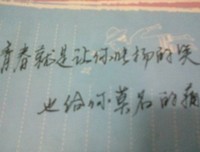 青春就是让你张扬的笑
也给你莫名的痛